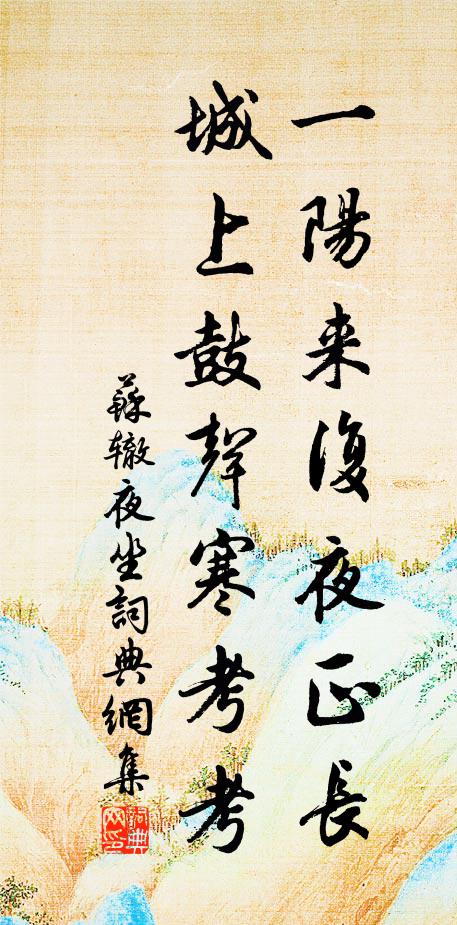 一陽来復夜正長
城上鼓聲寒考考
蘇辙夜坐詞典網集
詞典网印